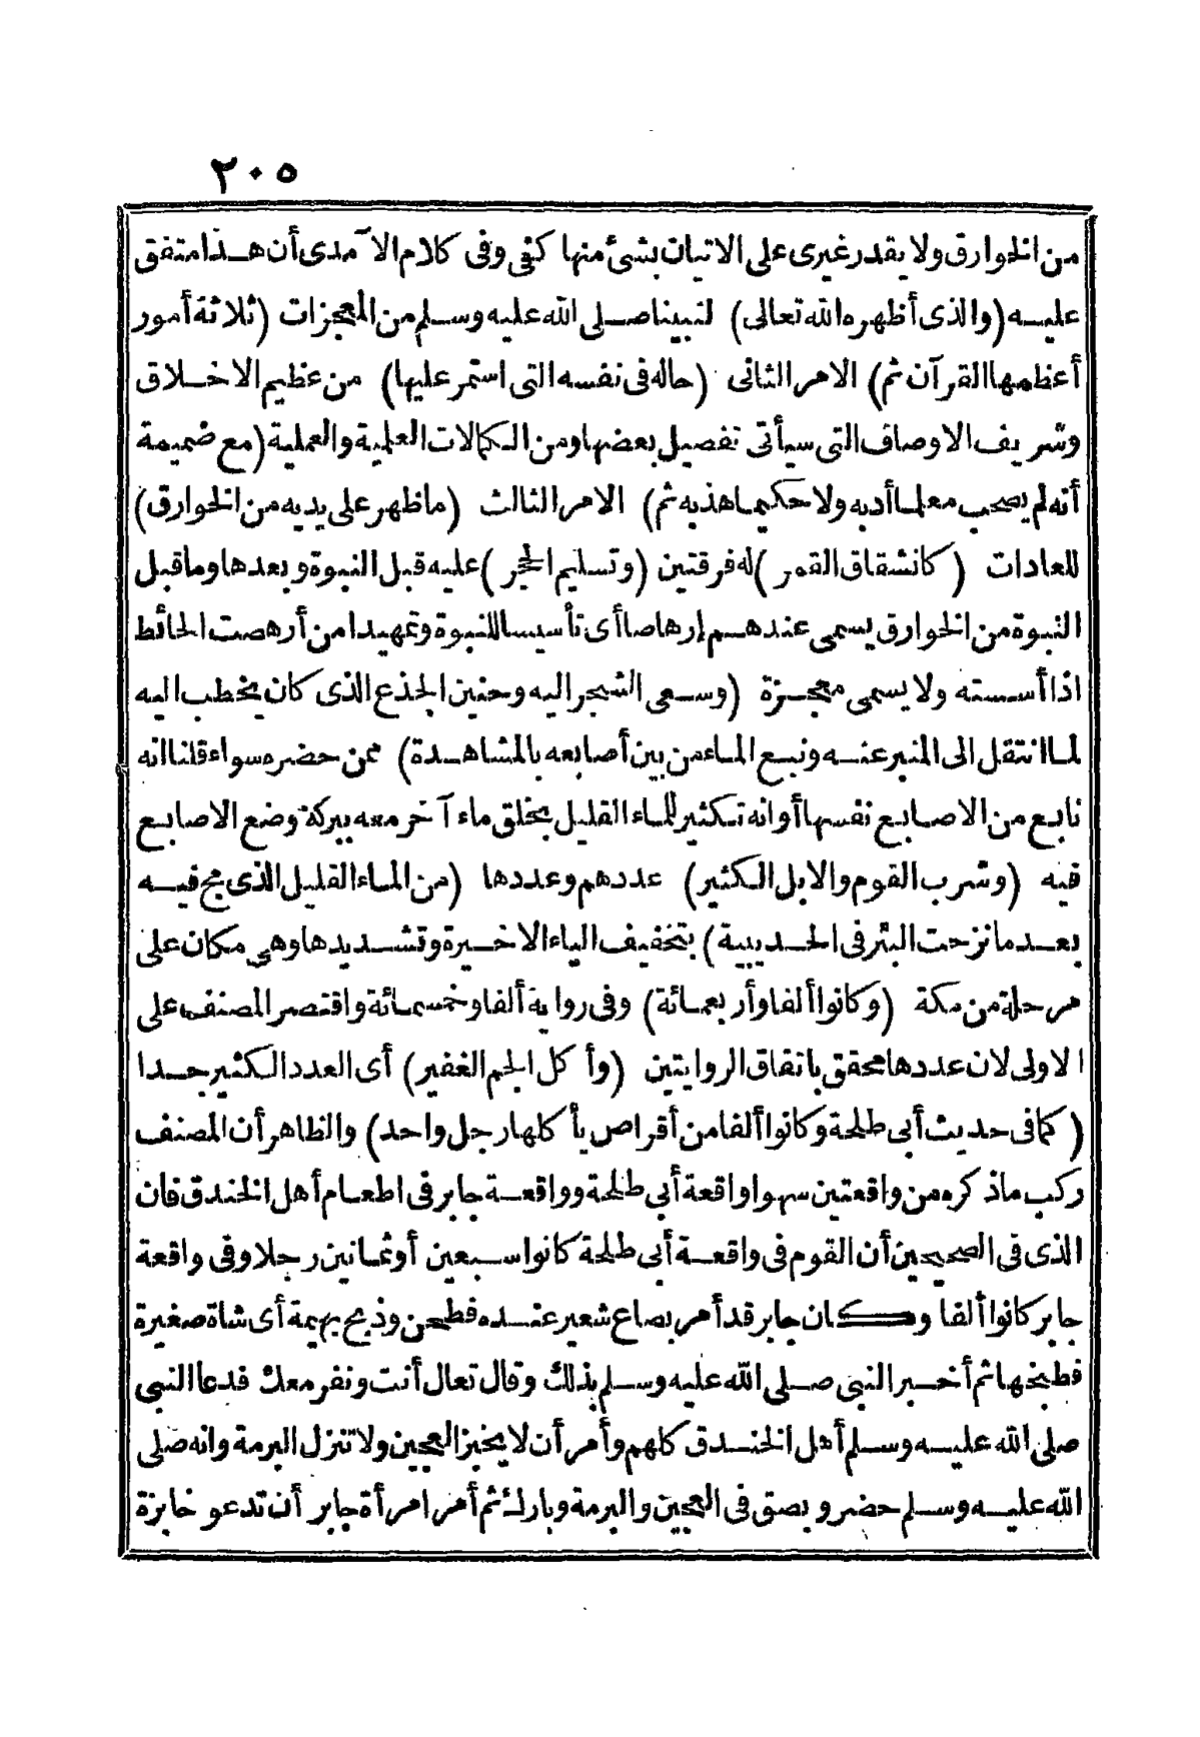 ٢٠٥
من الخوارق ولا يقدر غيرى على الاتيان بشئ منها كفى وفى كلام الآمدى أن هذا متفق
عليه (والذى أظهره الله تعالى) لنبينا صلى الله عليه وسلم من المعجزات (ثلاثة أمور
أعظمها القرآن ثم) الامر الثانى (حاله فى نفسه التى استمر عليها) من عظيم الاخلاق
وشريف الاوصاف التى سيأتى تفصيل بعضها ومن الكمالات العلمية والعملية (مع ضميمة
أنه لم يصحب معلما أدبه ولا حكيما هذبه ثم) الامر الثالث (ما ظهر على يديه من الخوارق)
للعادات (كانشقاق القمر) له فرقتين (وتسليم الحجر) عليه قبل النبوة وبعدها وما قبل
النبوة من الخوارق يسمى عندهم إرهاصا أى تأسيسا للنبوة وتمهيدا من أرهصت الحائط
اذا أسسته ولا يسمى معجزة (وسعى الشجر اليه وحنين الجذع الذى كان يخطب اليه
لما انتقل الى المنبر عنه ونبع الماء من بين أصابعه بالمشاهدة) ممن حضره سواء قلنا انه
نابع من الاصابع نفسها أو انه تكثير للماء القليل بخلق ماء آخر معه ببركة وضع الاصابع
فيه (وشرب القوم والابل الكثير) عددهم وعددها (من الماء القليل الذى مج فيه
بعد ما نزحت البئر فى الحديبية) بتخفيف الياء الاخيرة وتشديدها وهى مكان على
مرحلة من مكة (وكانوا ألفا وأربعمائة) وفى رواية ألفا وخمسمائة واقتصر المصنف على
الاولى لان عددها محقق باتفاق الروايتين (وأكل الجم الغفير) أى العدد الكثير جدا
(كما فى حديث أبى طلحة وكانوا ألفا من أقراص يأكلها رجل واحد) والظاهر أن المصنف
ركب ما ذكره من واقعتين سهوا واقعة أبى طلحة وواقعة جابر فى اطعام أهل الخندق فان
الذى فى الصحيحين أن القوم فى واقعة أبى طلحة كانوا سبعين أو ثمانين رجلا وفى واقعة
جابر كانوا ألفا وكان جابر قد أمر بصاع شعير عنده فطحن وذبح بهيمة أى شاة صغيرة
فطبخها ثم أخبر النبى صلى الله عليه وسلم بذلك وقال تعال أنت ونفر معك فدعا النبى
صلى الله عليه وسلم أهل الخندق كلهم وأمر أن لا يخبز العجين ولا تنزل البرمة وانه صلى
الله عليه وسلم حضر وبصق فى العجين والبرمة وبارك ثم أمر امرأة جابر أن تدعو خابزة